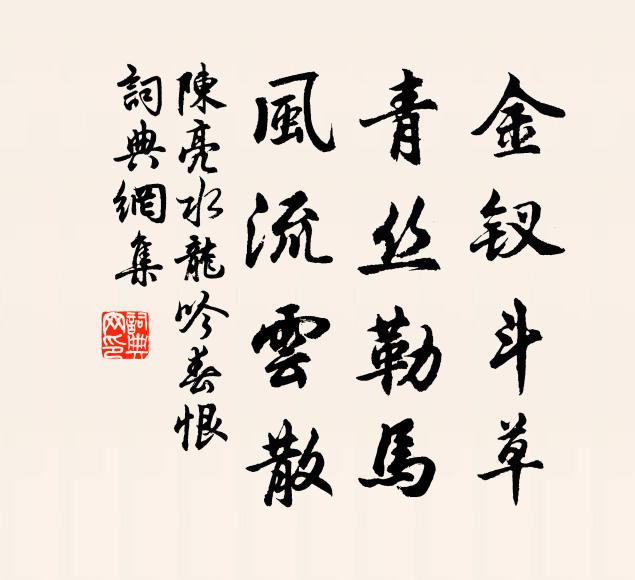 金钗斗草
青丝勒馬
風流雲散
陳亮水龍吟春恨
詞典網集
詞典網印